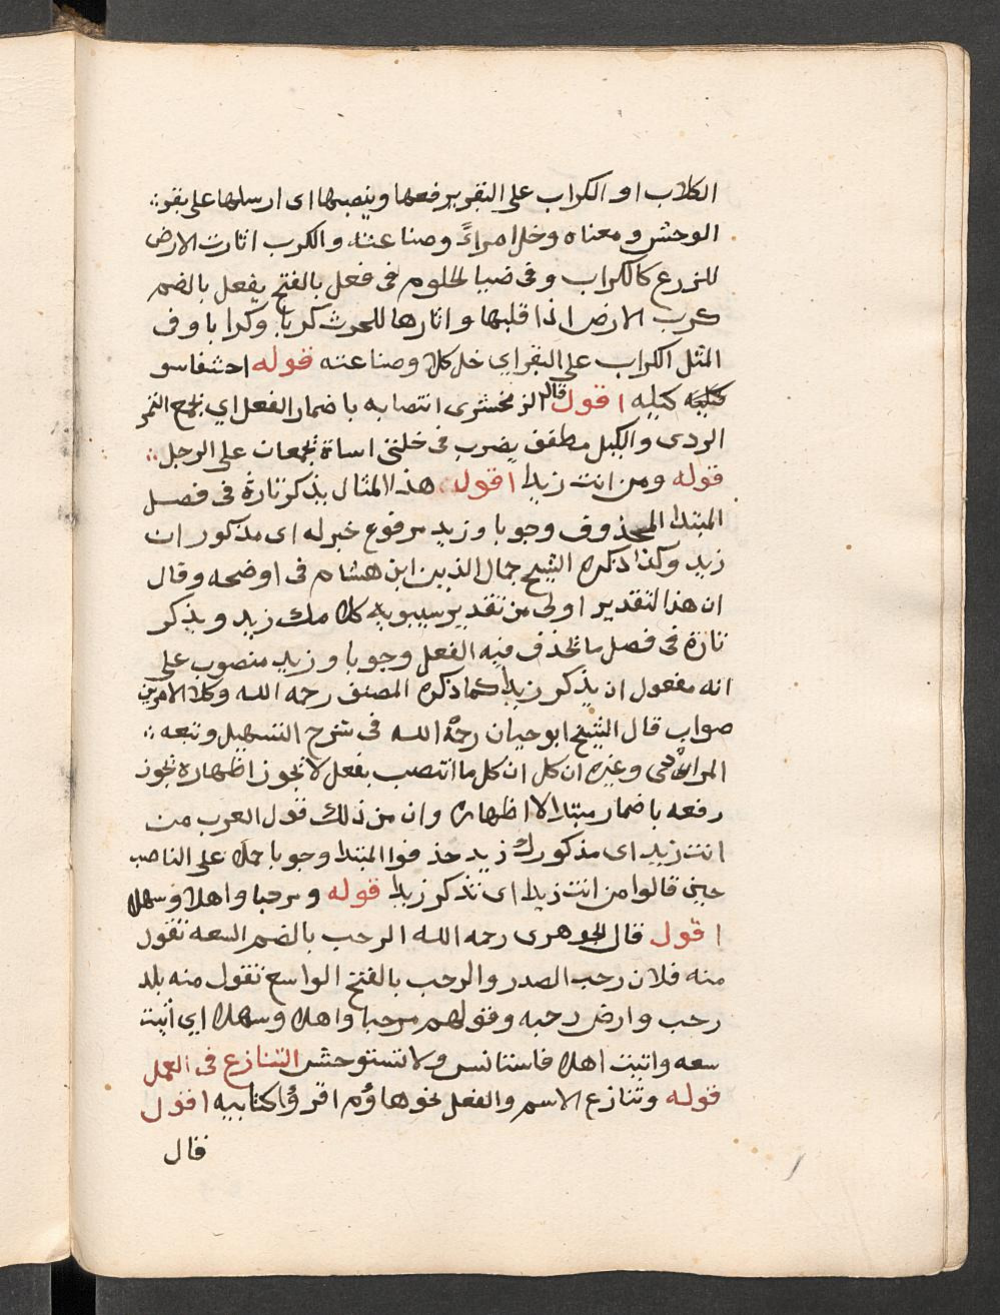 الكلاب او الكراب على البقر برفعها وينصبها اى ارسلها على بقر
الوحش ومعناه وخل امراءً وصناعته والكرب اثارت الارض
للزرع كالكراب وفى ضيا الحلوم فى فعل بالفتح يفعل بالضم
كرب الارض اذا قلبها واثارها للحرث كربا وكرابا وفى
المثل الكراب على البقر اي خل كلا وصناعته قوله احشفا سو
كيله اقول قال الزمخشرى انتصابه باضمار الفعل اي تجمع التمر
الردى والكيل مطفف يضرب فى خلتى اساة تجمعان على الرجل
قوله ومن انت زيدا اقول هذا المثال يذكر تارة فى فصل
المبتدا المحذوف وجوبا وزيد مرفوع خبر له اى مذكورك
زيد وكذا ذكره الشيخ جمال الدين ابن هشام فى اوضحه وقال
ان هذا التقدير اولى من تقدير سيبويه كلامك زيد ويذكر
تارة فى فصل ما يحذف فيه الفعل وجوبا وزيد منصوب على
انه مفعول ان يذكر زيدا كما ذكره المصنف رحمه الله وكلا الامرين
صواب قال الشيخ ابو حيان رحمه الله فى شرح التسهيل وتبعه
المرادى وغيره ان كل ان كل ما انتصب بفعل لا يجوز اظهاره يجوز
رفعه باضمار مبتدا لا اظهاره وان من ذلك قول العرب من
انت زيد اى مذكورك زيد حذفوا المبتدا وجوبا حملا على الناصب
حين قالوا من انت زيدا اى تذكر زيدا قوله ومرحبا واهلا وسهلا
اقول قال الجوهرى رحمه الله الرحب بالضم السعه تقول
منه فلان رحب الصدر والرحب بالفتح الواسع تقول منه بلد
رحب وارض رحبه وقولهم مرحبا واهلا وسهلا اي أتيت
سعه واتيت اهلا فاستانس ولا تستوحش التنازع فى العمل
قوله وتنازع الاسم والفعل نحو هاؤم اقرؤا كتابيه اقول
قال